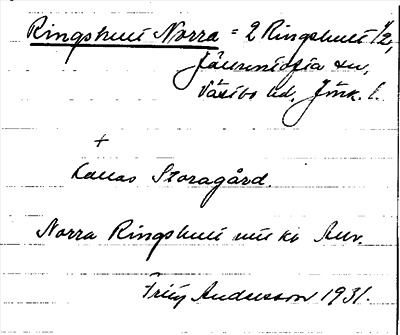 Ringshult Norra = 2 Ringshult 1/2,
Jälluntofta sn,
Västbo hd, Jönk. l.
+
Kallas Storagård.
Norra Ringshult
Andersson 1931.